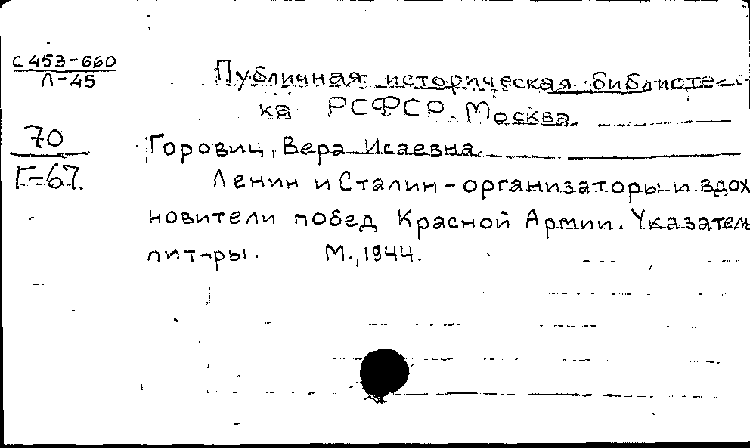 С 453-660
Л-45
Публичная историческая библиоте-
ка РСФСР. Москва.
70
Г-67.
Горовиц, Вера Исаевна.
Ленин и Сталин - организаторы и вдох
новители побед Красной Армии. Указатель
лит-ры. М., 1944.